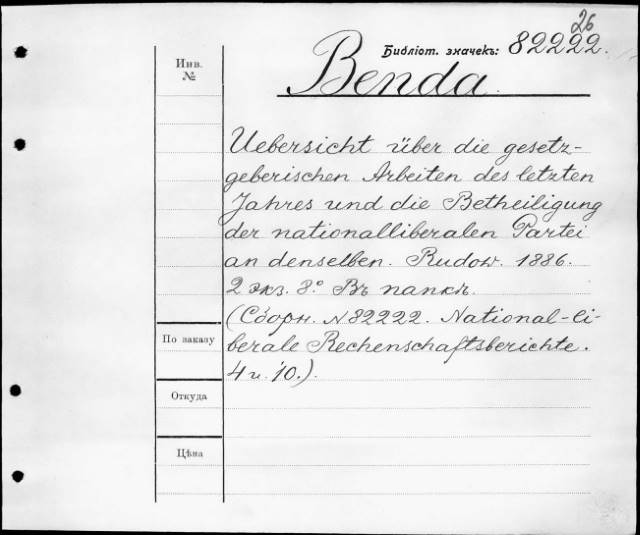 26
Библіот. значекъ: 82222.
Инв.
№
Benda.
Uebersicht über die gesetz-
geberischen Arbeiten des letzten
Jahres und die Betheiligung
der nationalliberalen Partei
an denselben. Rudow. 1886.
2 экз. 8º Въ папкѣ.
(Сборн. № 82222. National-li-
berale Rechenschaftsberichte.
4 и 10.).
По заказу
Откуда
Цѣна